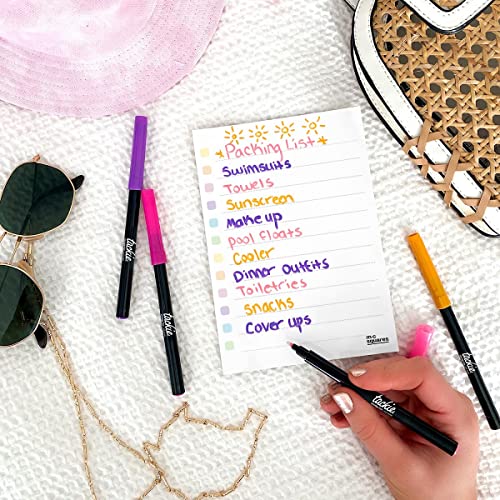 Packing List
Swimsuits
Towels
Sunscreen
Makeup
Pool floats
Cooler
Dinner Outfits
Toiletries
snacks
Cover ups
m.c
squares
tackie
tackie
tackie
tackie